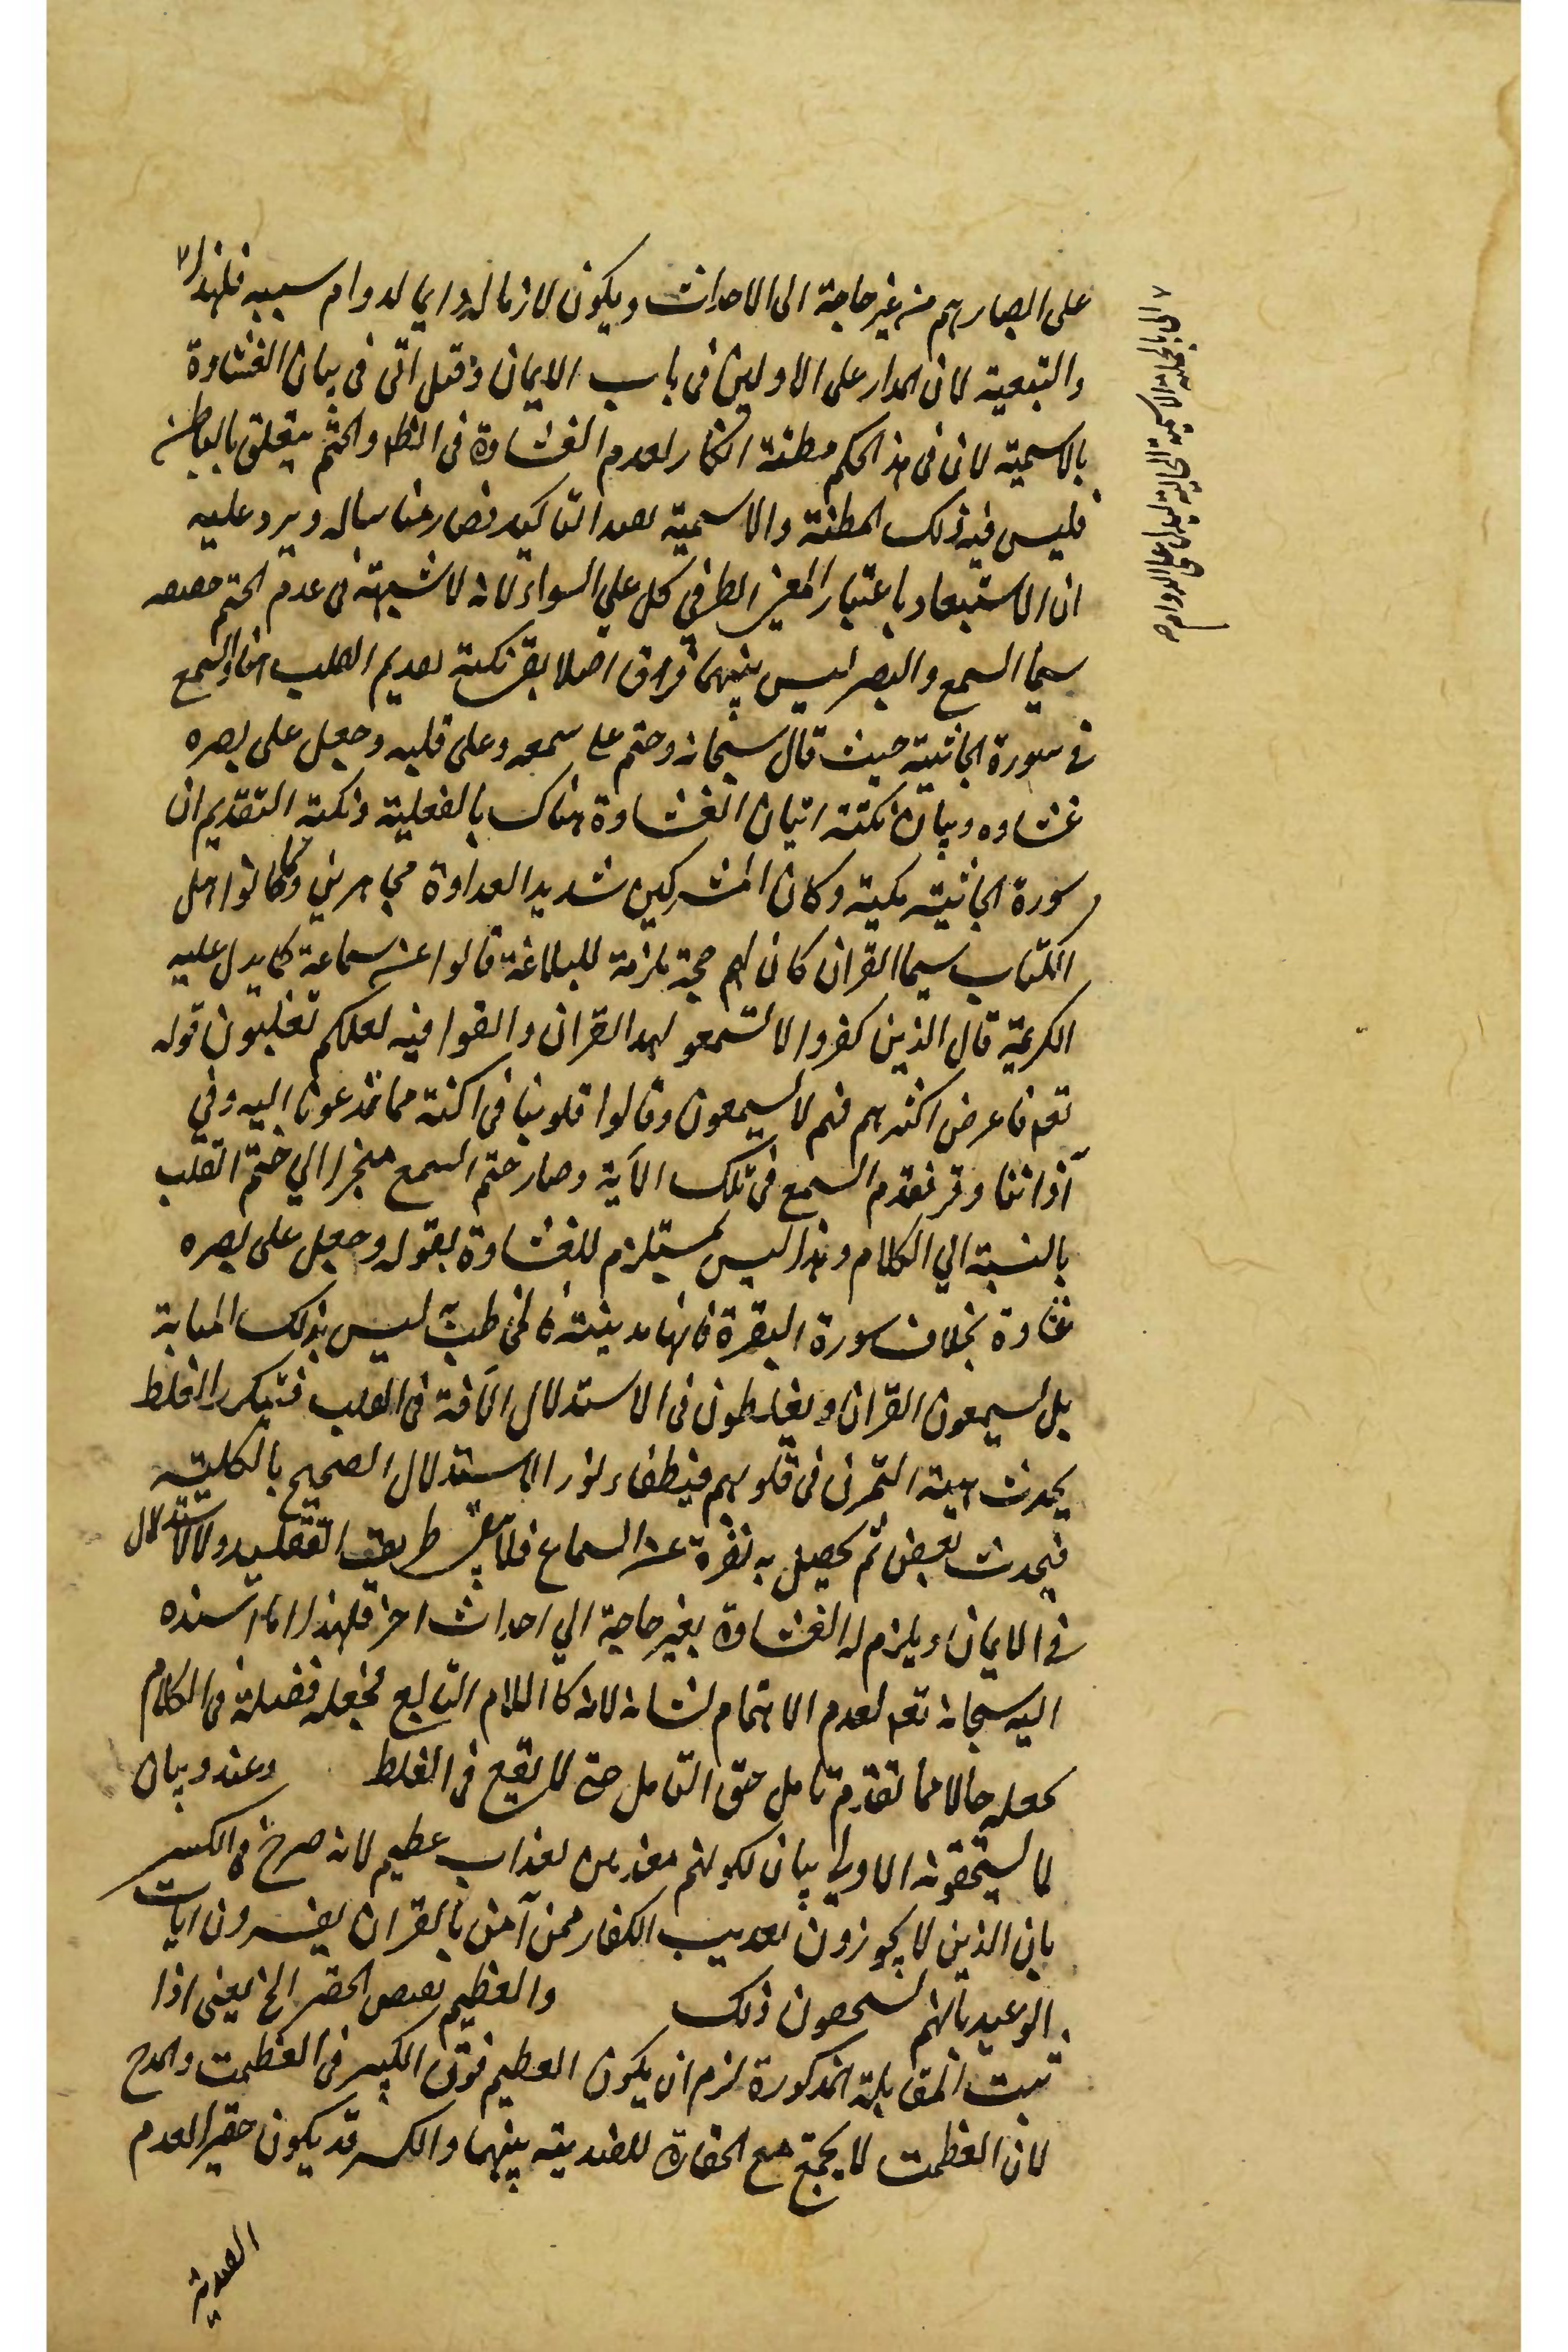 على ابصارهم من غير حاجة الى الاحداث ويكون لازما له دايما لدوام سببه فلهذا
والتبعية لان المدار على الاولين فى باب الايمان وقيل اتى فى بيان الغشاوة
بالاسمية لان فى هذ الحكم مظنة انكار لعدم الغشاوة فى النظر والختم يتعلق بالباطن
فليس فيه ذلك المظنة والاسمية بعد التاكيد فصار مناسباله ويرد عليه
ان الاستبعاد باعتبار المعنى الطرفي كل على السواء لانه لا شبهة فى عدم الختم
سيما السمع والبصر ليس بينهما فراق اصلا بقى نكتة تقديم القلب هنا والسمع
فى سورة الجاثية حيث قال سبحانه وختم على سمعه وعلى قلبه وجعل على بصره
غشاوه وبيان نكتة اتيان الغشاوة هناك بالفعلية ونكتة التقديم ان
سورة الجاثية مكية وكان المشركين شديد العداوة مجاهرين وكانوا اهل
الكتاب سيما القران كان لهم حجة ملزمة للبلاغة قالوا عن سماعة كما يدل عليه
الكريمة قال الذين كفروا لا تسمعو لهذ القران والغوا فيه لعلكم تغلبون قوله
تعم فاعرض اكثرهم فهم لا يسمعون وقالوا قلوبنا فى اكنة مما تدعونا اليه وفي
آذاننا وقر فقدم السمع فى تلك الآية وصار ختم السمع منجرا الي ختم القلب
بالنسبة الي الكلام وهذا ليس بمستلزم للغشاوة بقوله وجعل على بصره
غشاوة بخلاف سورة البقرة فانها مدينة فالمخاطب ليس بذلك المثابة
بل يسمعون القران ويغلطون فى الاستدلال الآفة فى القلب فبتكرر الغلط
يحدث هيئة التمرن فى قلوبهم فينطفاء نور الاستدلال الصحيح بالكلية
فيحدث بغض ثم يحصل به نفرة عن السماع فلا يبقى طريق التقليد ولا الاستدلال
فى الايمان ويلزم له الغشاوة بغير حاجة الي احداث اخر فلهذا ما اسنده
اليه سبحانه تعم لعدم الاهتمام لشانه لانه كالكلام التابع فجعله فضلة فى الكلام
بجعله حالا مما تقدم تامل حق التامل حتى لا يقع فى الغلط وعيد وبيان
لما يستحقونه الاولى بيان لكونهم معذبين بعذاب عظيم لانه صرح فى الكبير
بان الذين لا يجوزون تعذيب الكفار ممن آمن بالقران يفسرون ايات
الوعيد بانهم يستحقون ذلك والعظيم نقيض الحقير الخ يعنى اذا
ثبت المقابلة المذكورة لزم ان يكون العظيم فوق الكبير فى العظمت والمدح
لان العظمت لا يجتمع مع الحقارة للضدية بينهما والكبير قد يكون حقيرا لعدم